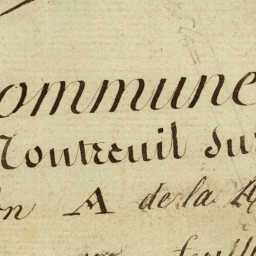 ommune
Montreuil sur
on A de la
feuill